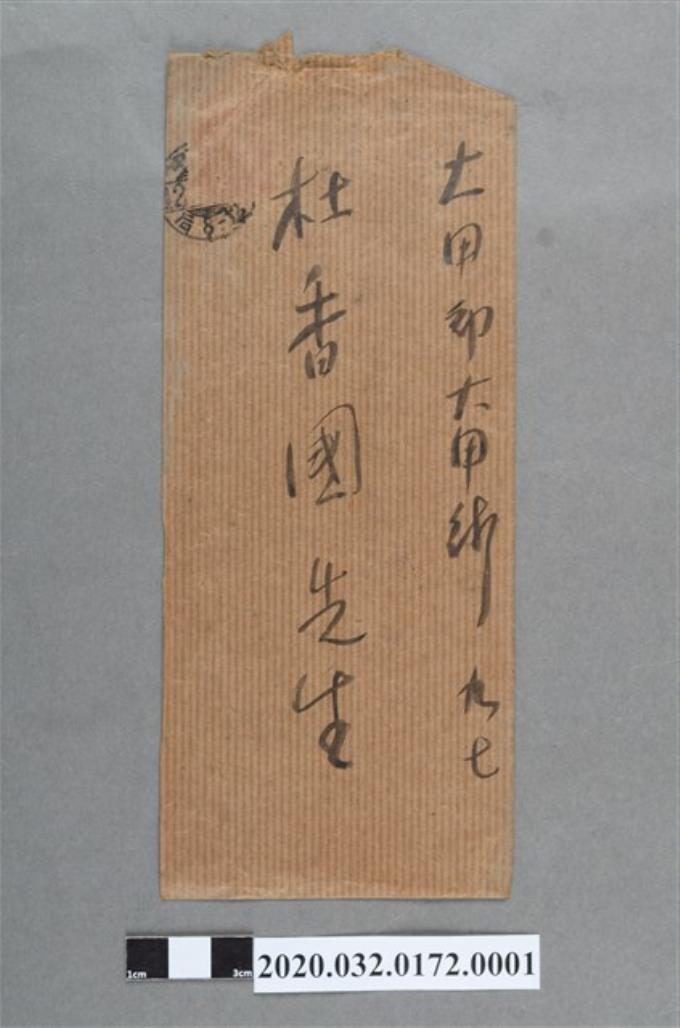 大甲郡大甲街 九七
杜香國先生
1cm 3cm
2020.032.0172.0001